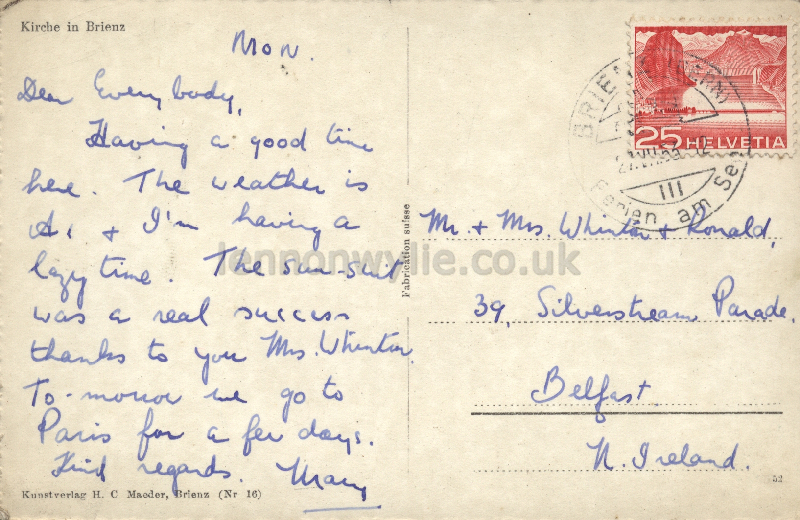 Kirche in Brienz
Mon.
Dear Everybody,
Having a good time
here. The weather is
A1 & I'm having a
lazy time. The sun-suit
was a real success
thanks to you Mrs. Whinton.
To-morrow we go to
Paris for a few days.
Kind regards. Mary
Kunstverlag H. C Maeder, Brienz (Nr 16)
Fabrication suisse
BRIENZ (BERN)
III
Ferien am See
25 HELVETIA
Mr. + Mrs. Whinton & Ronald,
39, Silverstream Parade,
Belfast
N. Ireland.
52
lennonwylie.co.uk